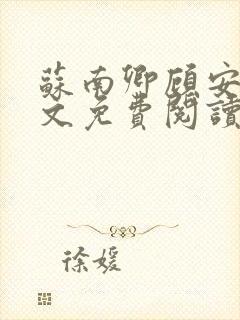 蘇南卿顧安
文免費閱讀
徐媛